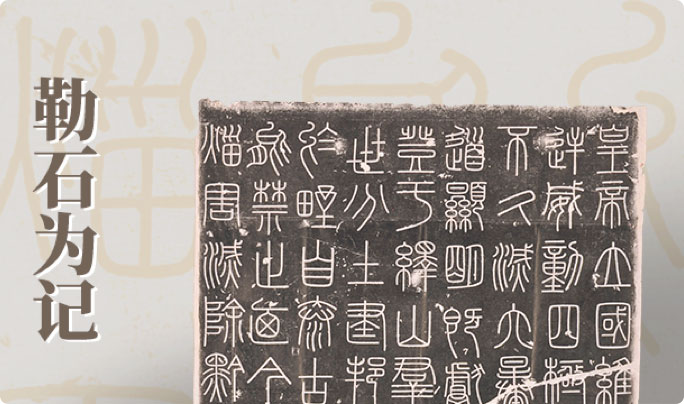 勒石为记
皇帝立國維
逆威動四極
不久滅六暴
道顯明既獻
登于繹山羣
世分土建邦
於野自泰古
能禁止廼今
烖害滅除黔